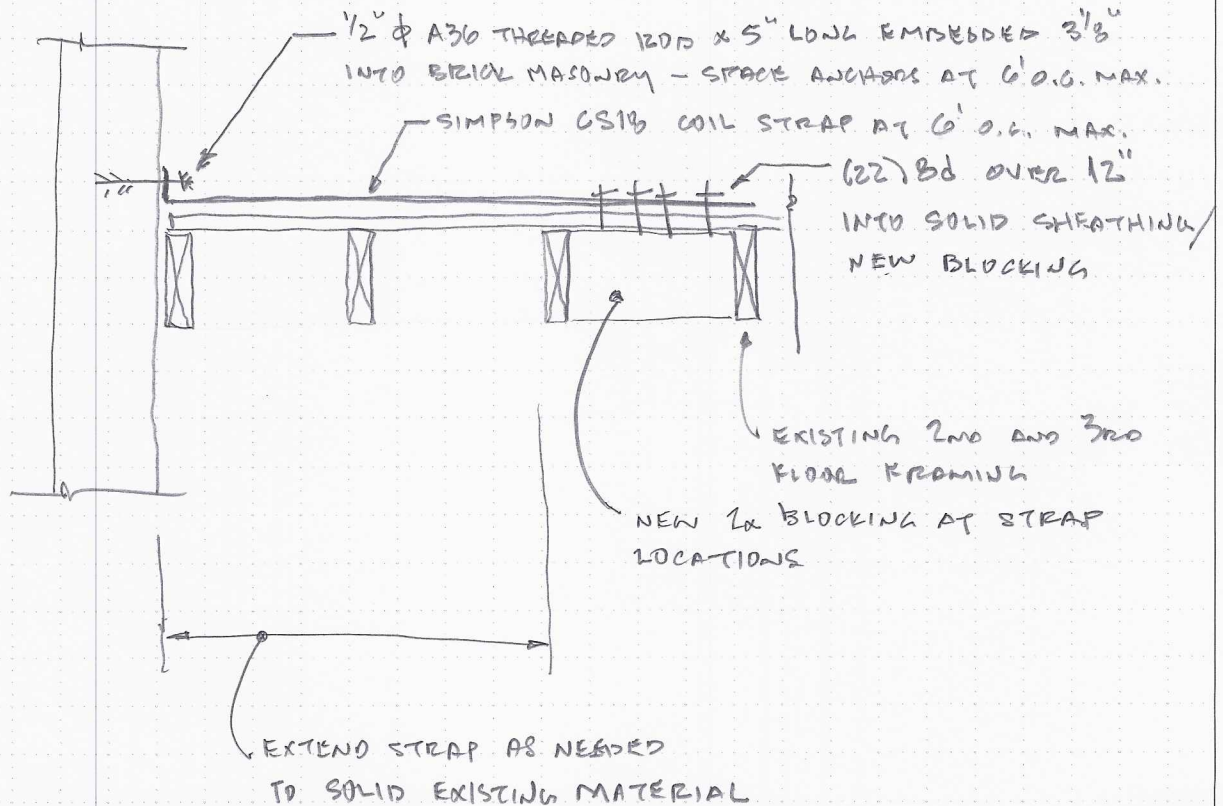 1/2" ϕ A36 THREADED ROD x 5" LONG EMBEDDED 3 1/8"
INTO BRICK MASONRY - SPACE ANCHORS AT 6' O.C. MAX.
SIMPSON CS18 COIL STRAP AT 6' O.C. MAX.
(22) 8d OVER 12"
INTO SOLID SHEATHING/
NEW BLOCKING
EXISTING 2ND AND 3RD
FLOOR FRAMING
NEW 2x BLOCKING AT STRAP
LOCATIONS
EXTEND STRAP AS NEEDED
TO SOLID EXISTING MATERIAL